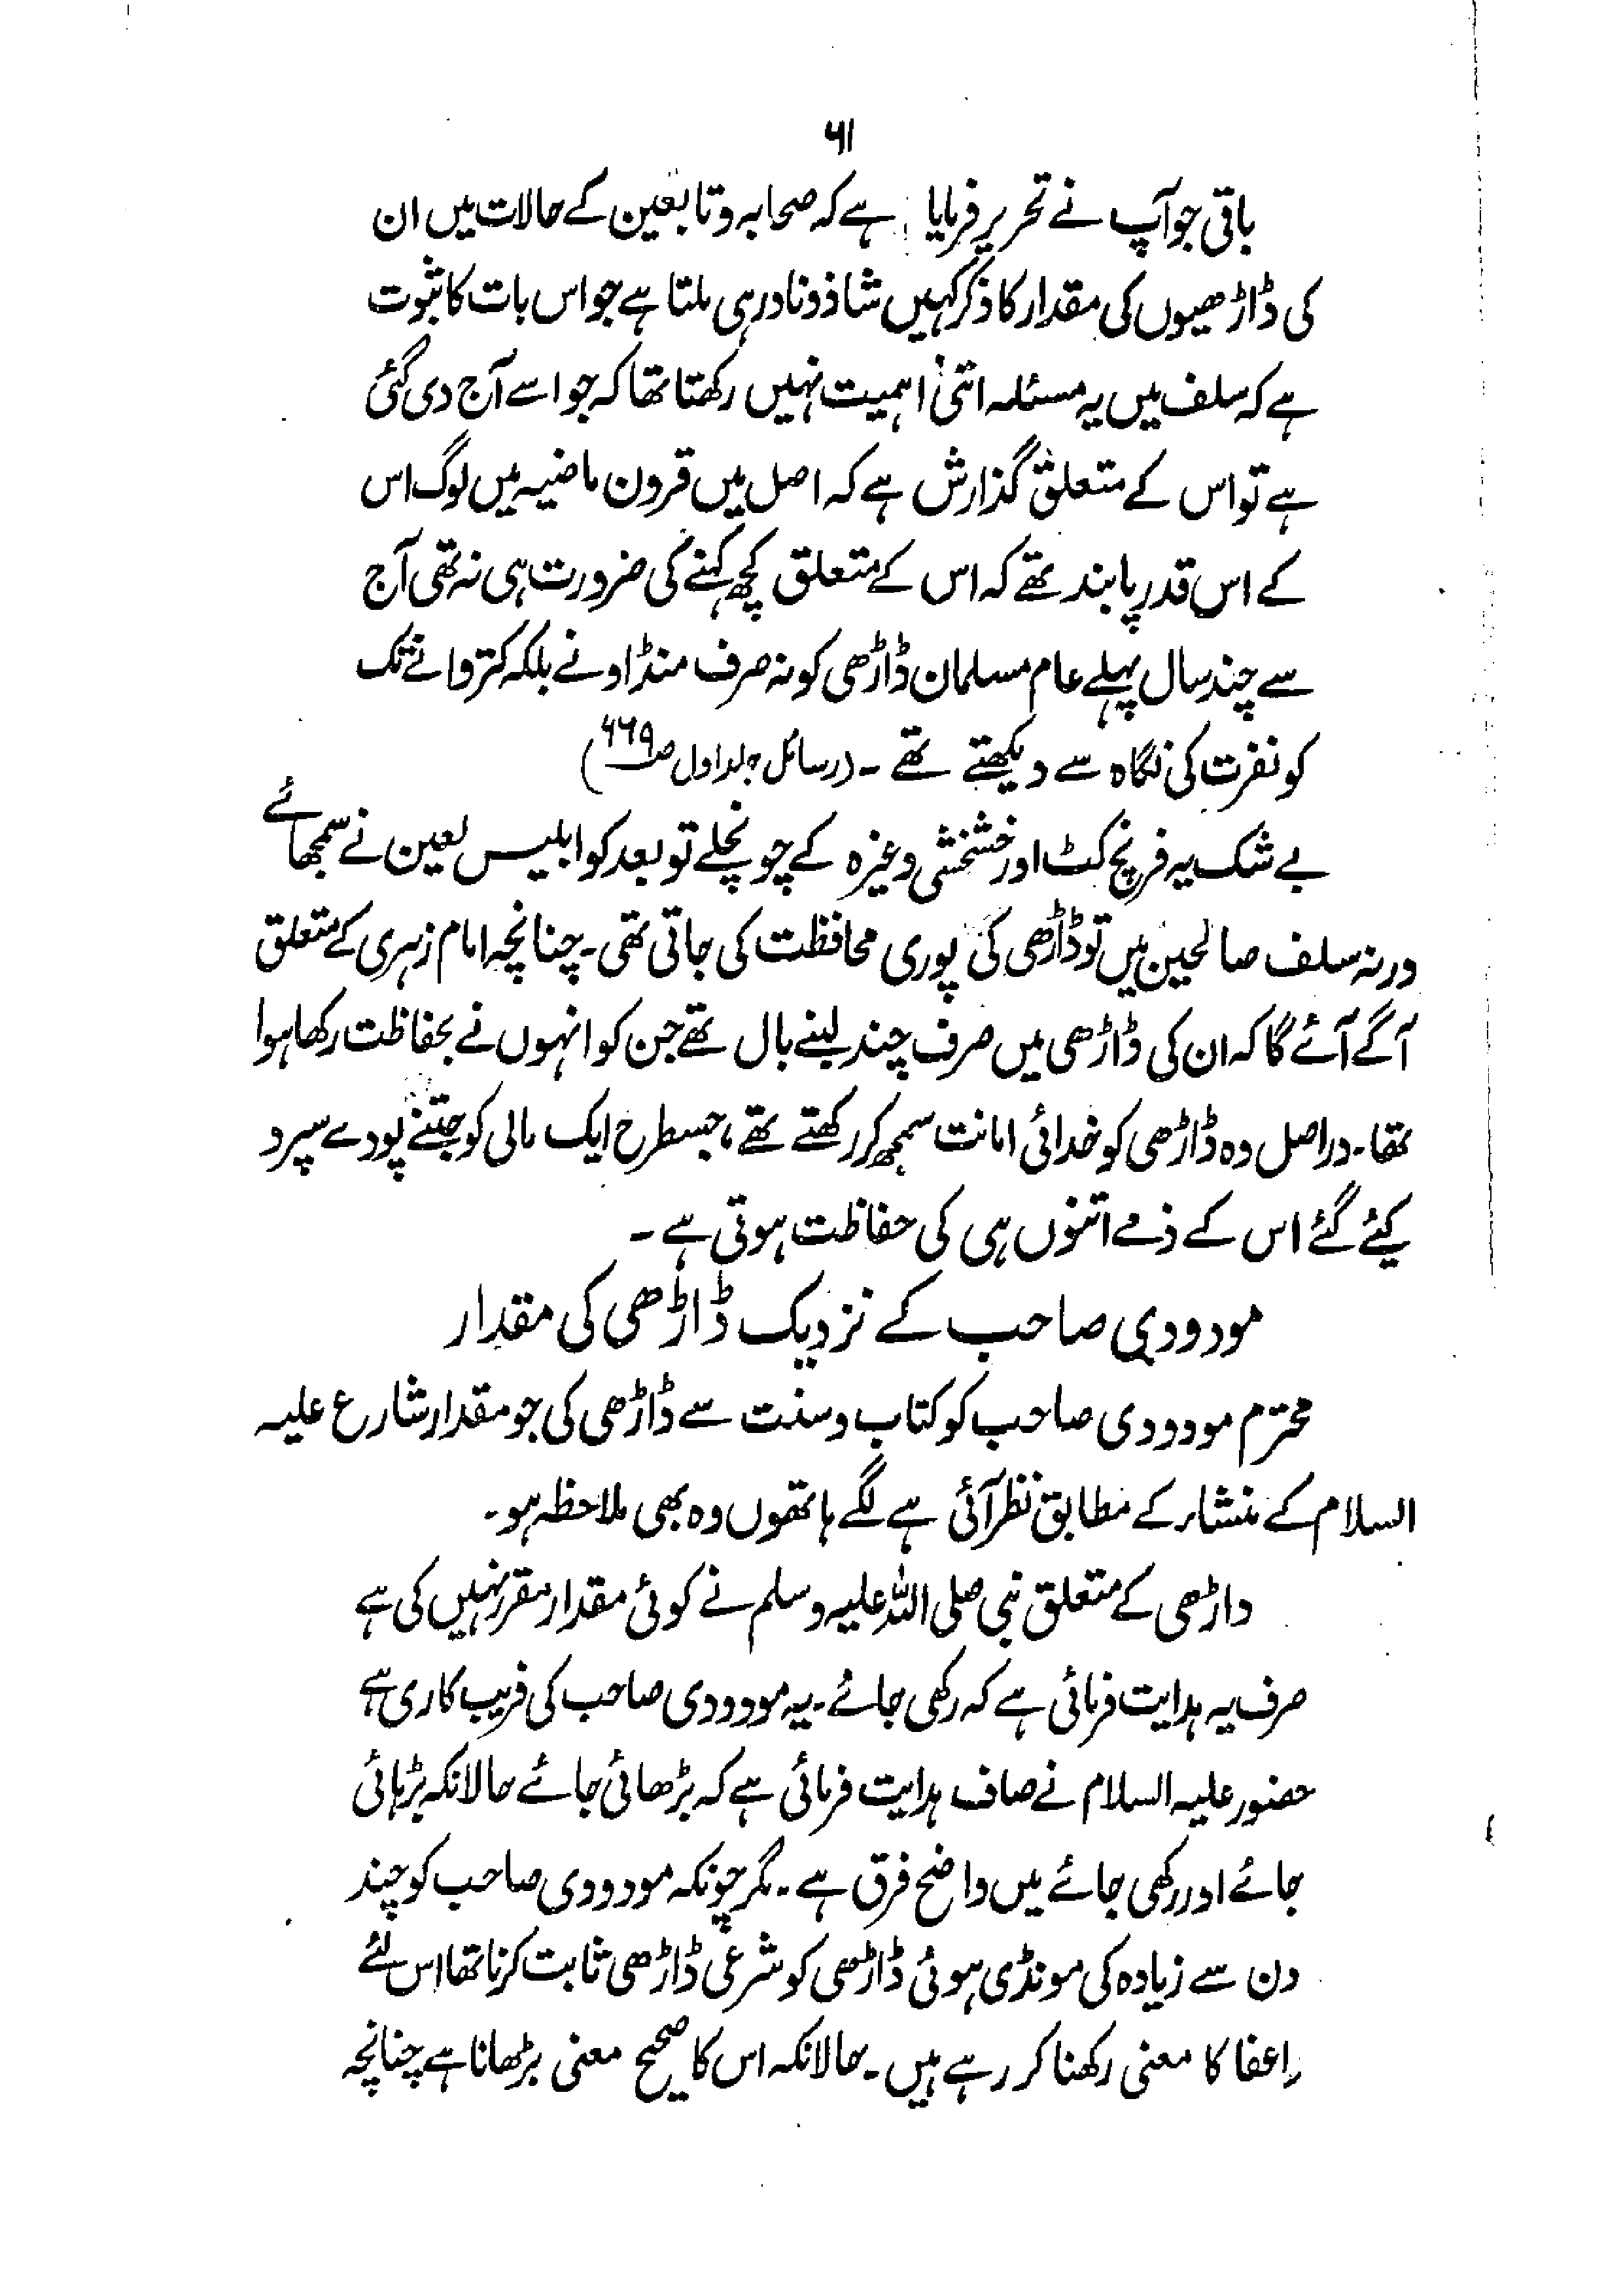 ۶۱
باقی جو آپ نے تحریر فرمایا ہے کہ صحابہ و تابعین کے حالات میں ان
کی ڈاڑھیوں کی مقدار کا ذکر کہیں شاذ و نادر ہی ملتا ہے جو اس بات کا ثبوت
ہے کہ سلف میں یہ مسئلہ اتنی اہمیت نہیں رکھتا تھا کہ جو اسے آج دی گئی
ہے تو اس کے متعلق گذارش ہے کہ اصل میں قرون ماضیہ میں لوگ اس
کے اس قدر پابند تھے کہ اس کے متعلق کچھ کہنے کی ضرورت ہی نہ تھی آج
سے چند سال پہلے عام مسلمان ڈاڑھی کو نہ صرف منڈاونے بلکہ کتروانے تک
کو نفرت کی نگاہ سے دیکھتے تھے ۔ (رسائل جلد اول ص)
بے شک یہ فرنچ کٹ اور خشخشی وغیرہ کے چونچلے تو بعد کو ابلیس لعین نے سمجھائے
ورنہ سلف صالحین میں تو ڈاڑھی کی پوری محافظت کی جاتی تھی۔ چنانچہ امام زہری کے متعلق
آگے آئے گا کہ ان کی ڈاڑھی میں صرف چند لنبے بال تھے جن کو انہوں نے بحفاظت رکھا ہوا
تھا۔ دراصل وہ ڈاڑھی کو خدائی امانت سمجھ کر رکھتے تھے، جسطرح ایک مالی کو جتنے پودے سپرد
کیئے گئے اس کے ذمے اتنوں ہی کی حفاظت ہوتی ہے ۔
مودودی صاحب کے نزدیک ڈاڑھی کی مقدار
محترم مودودی صاحب کو کتاب و سنت سے ڈاڑھی کی جو مقدار شارع علیہ
السلام کے منشاء کے مطابق نظر آئی ہے لگے ہاتھوں وہ بھی ملاحظہ ہو۔
داڑھی کے متعلق نبی صلی اللہ علیہ وسلم نے کوئی مقدار مقرر نہیں کی ہے
صرف یہ ہدایت فرمائی ہے کہ رکھی جائے۔ یہ مودودی صاحب کی فریب کاری ہے
حضور علیہ السلام نے صاف ہدایت فرمائی ہے کہ بڑھائی جائے حالانکہ بڑہائی
جائے اور رکھی جائے میں واضح فرق ہے۔ مگر چونکہ مودودی صاحب کو چند
دن سے زیادہ کی مونڈی ہوئی ڈاڑھی کو شرعی ڈاڑھی ثابت کرنا تھا اس لئے
اعفا کا معنی رکھنا کر رہے ہیں۔ حالانکہ اس کا صحیح معنی بڑھانا ہے چنانچہ